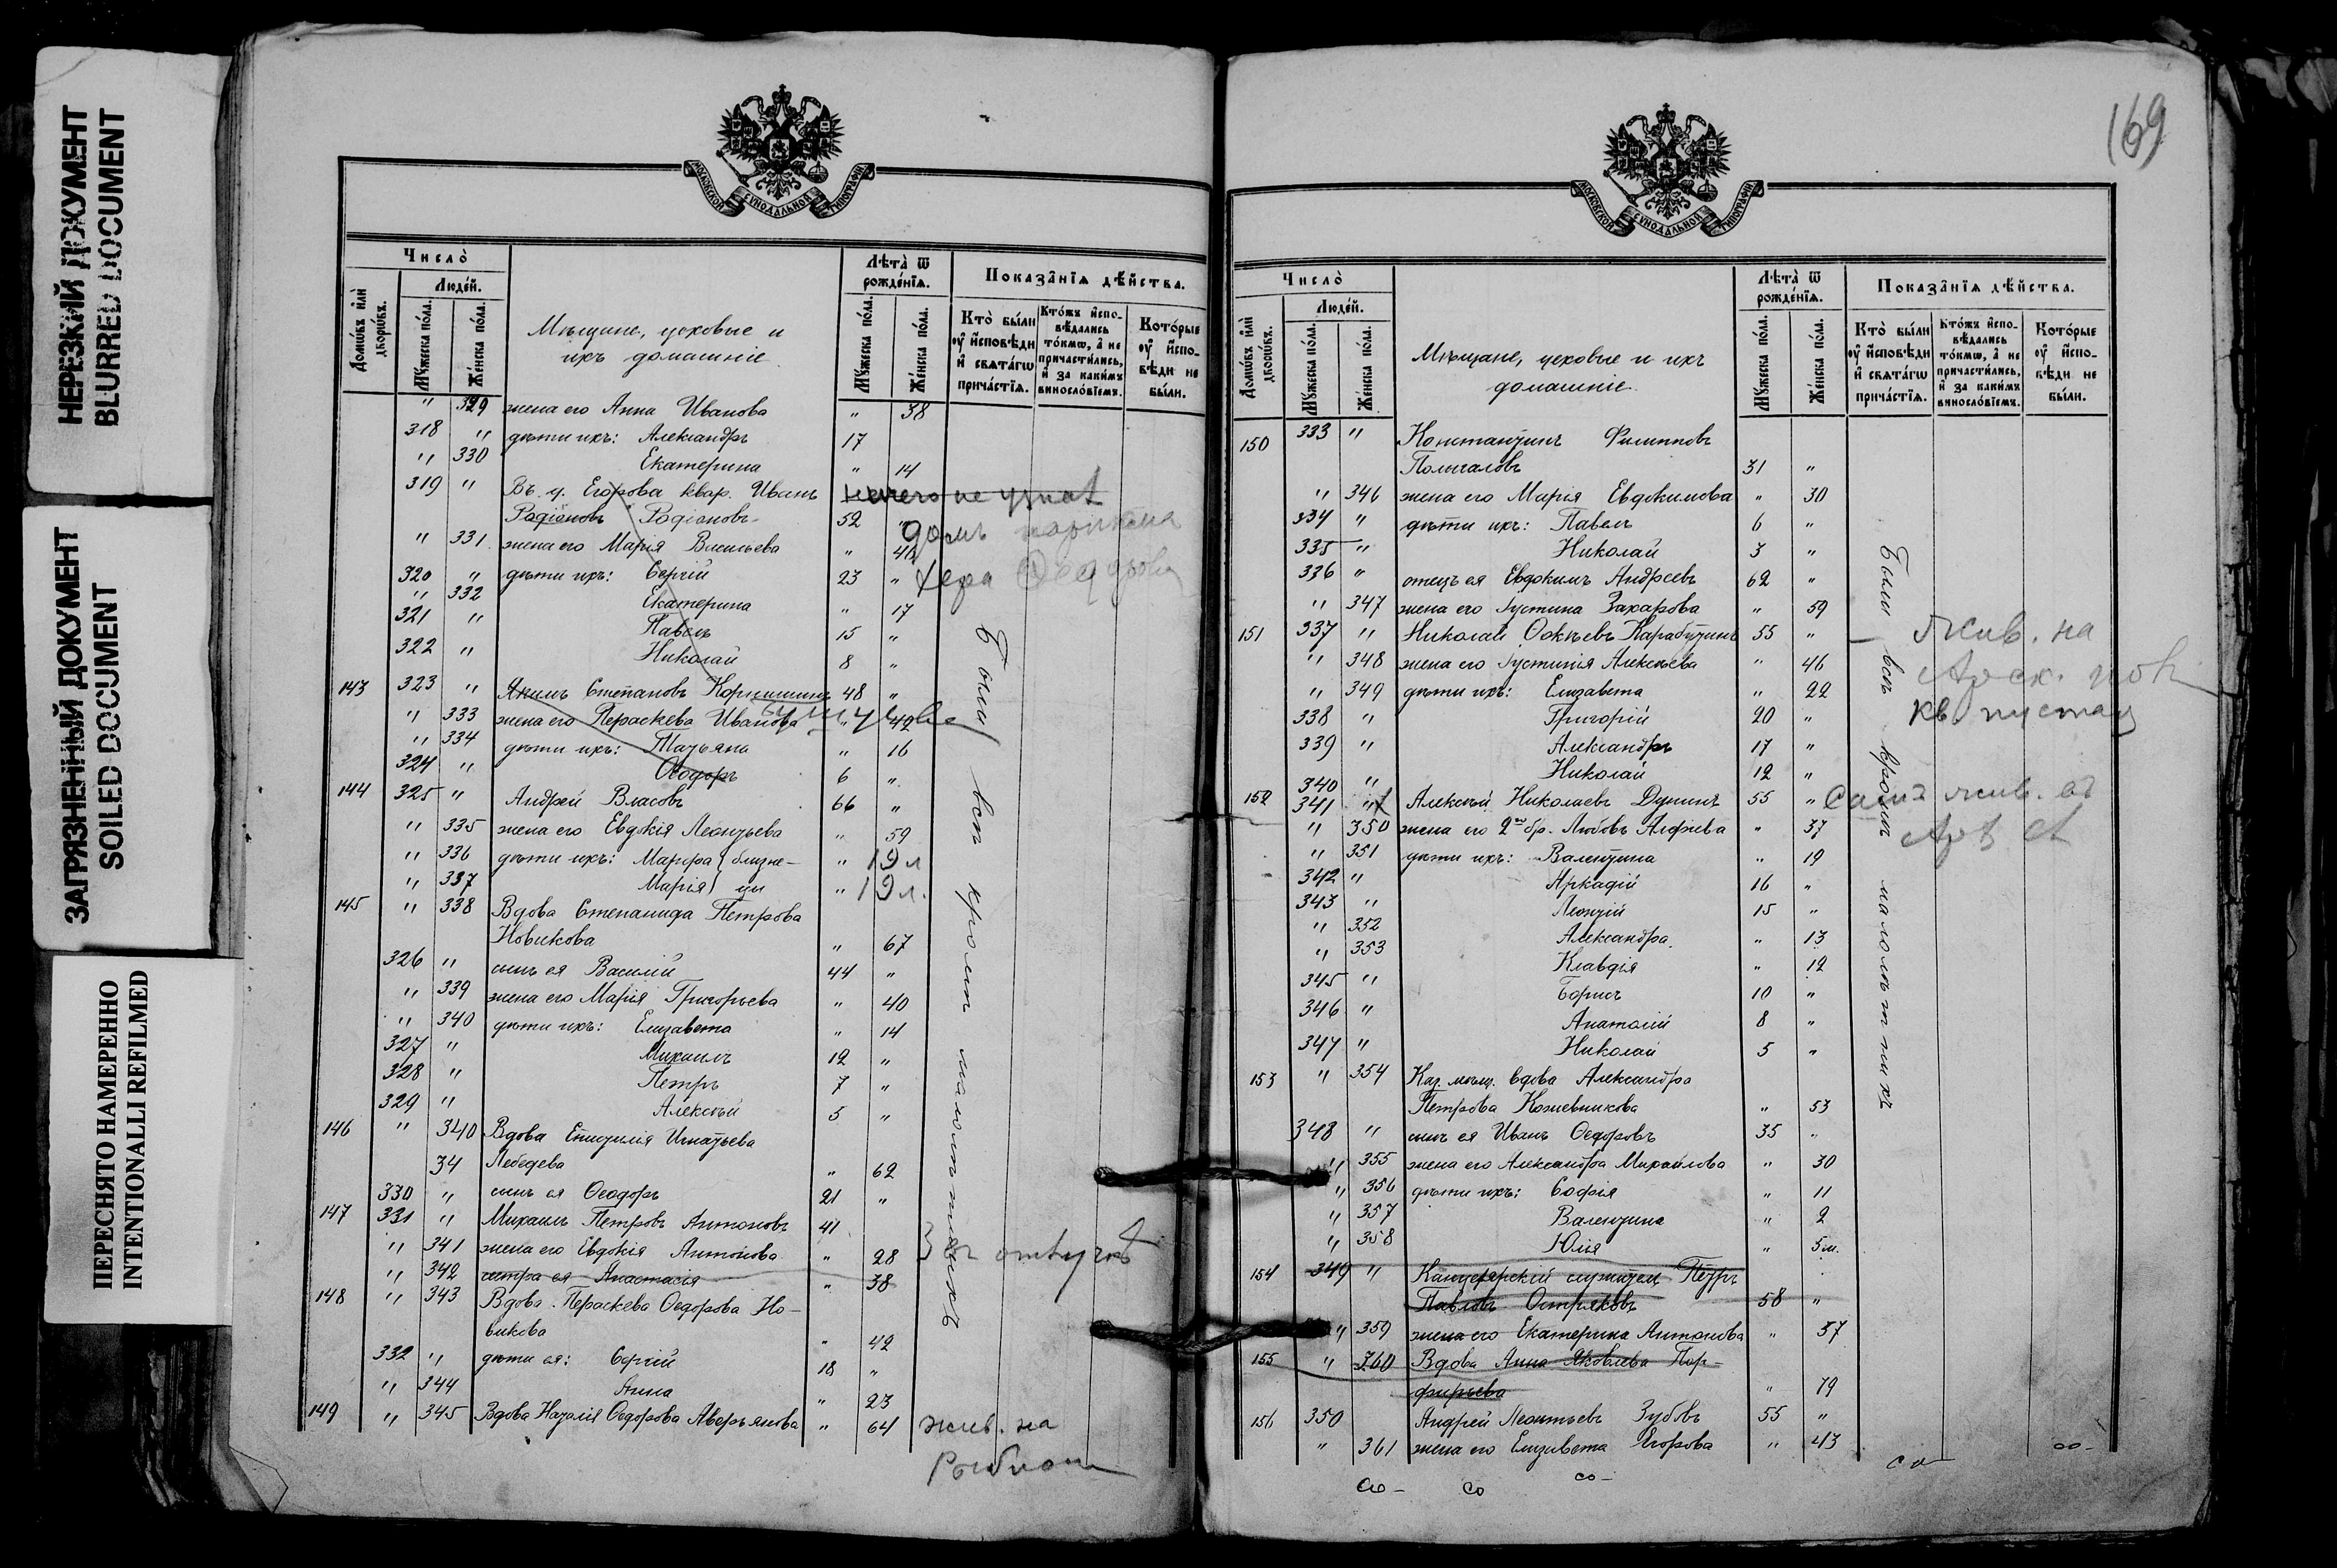 НЕРЕЗКИЙ ДОКУМЕНТ
BLURRED DOCUMENT
ЗАГРЯЗНЕННЫЙ ДОКУМЕНТ
SOILED DOCUMENT
ПЕРЕСНЯТО НАМЕРЕННО
INTENTIONALLI REFILMED
МОСКОВСКОЙ СѴНОДАЛЬНОЙ ТИПОГРАФІИ
Число̀
Домѡ́въ и҆лѝ дворѡ́въ.
Люде́й.
Мꙋ́жеска по́ла.
Же́нска по́ла.
Мѣщане, цеховые и
ихъ домашніе
Лѣта̀ ѿ рожде́нїѧ.
Мꙋ́жеска по́ла.
Же́нска по́ла.
Показа̑нїѧ дѣ́йства.
Кто̀ бы́ли оу҆ и҆сповѣ́ди и҆ свѧта́гѡ прича́стїѧ.
Кто́жъ и҆сповѣ́дались то́кмѡ, а҆ не причасти́лись, и҆ за каки́мъ виносло́вїемъ.
Кото́рые оу҆ и҆сповѣ́ди не бы́ли.
" 329 жена его Анна Иванова " 38
318 " дѣти ихъ: Александръ 17
" 330 Екатерина " 14
319 " Въ д. Егорова квар. Иванъ
Родіоновъ Родіоновъ 52 "
" 331 жена его Марія Васильева "
320 " дѣти ихъ: Сергій 23 "
" 332 Екатерина " 17
321 " Павелъ 15 "
322 " Николай 8 "
143 323 " Якимъ Степановъ 48 "
" 333 жена его Пераскева Иванова " 42
" 334 дѣти ихъ: Татьяна " 16
324 " Ѳеодоръ 6 "
144 325 " Андрей Власовъ 66 "
" 335 жена его Евдокія Леонтьева " 59
" 336 дѣти ихъ: Марѳа } близне- " 19 л
" 337 Марія } цы " 19 л.
145 " 338 Вдова Степанида Петрова
Новикова " 67
326 " сынъ ея Василій 44 "
" 339 жена его Марія Григорьева " 40
" 340 дѣти ихъ: Елизавета " 14
327 " Михаилъ 12 "
328 " Петръ 7 "
329 " Алексѣй 5 "
146 " 340 Вдова Игнатьева
34 Лебедева " 62
330 " сынъ ея Ѳеодоръ 21 "
147 331 " Михаилъ Петровъ Антоновъ 41
" 341 жена его Евдокія Антонова " 28
" 342 сестра ея Анастасія " 38
148 " 343 Вдова Пераскева Ѳедорова Но-
викова " 42
332 " дѣти ея: Сергій 18 "
" 344 Анна " 23
149 " 345 Вдова Наталія Ѳедорова Аверьянова " 64
жив. на
Были всѣ кромѣ малолѣтнихъ
169
МОСКОВСКОЙ СѴНОДАЛЬНОЙ ТИПОГРАФІИ
Число̀
Домѡ́въ и҆лѝ дворѡ́въ.
Люде́й.
Мꙋ́жеска по́ла.
Же́нска по́ла.
Мѣщане, цеховые и ихъ
домашніе.
Лѣта̀ ѿ рожде́нїѧ.
Мꙋ́жеска по́ла.
Же́нска по́ла.
Показа̑нїѧ дѣ́йства.
Кто̀ бы́ли оу҆ и҆сповѣ́ди и҆ свѧта́гѡ прича́стїѧ.
Кто́жъ и҆сповѣ́дались то́кмѡ, а҆ не причасти́лись, и҆ за каки́мъ виносло́вїемъ.
Кото́рые оу҆ и҆сповѣ́ди не бы́ли.
150 333 " Константинъ Филипповъ
Полигаловъ 31 "
" 346 жена его Марія Евдокимова " 30
334 " дѣти ихъ: Павелъ 6 "
335 " Николай 3 "
336 " отецъ ея Евдокимъ Андреевъ 62 "
" 347 жена его Іустина Захарова " 59
151 337 " Николай 55 "
" 348 жена его Іустинія Алексѣева " 46
" 349 дѣти ихъ: Елизавета " 22
338 " Григорій 20 "
339 " Александръ 17 "
340 " Николай 12 "
жив. на
кв пустая
152 341 " Алексѣй Николаевъ Дунинъ 55 "
" 350 жена его 2го бр. Любовь " 37
" 351 дѣти ихъ: Валентина " 19
342 " Аркадій 16 "
343 " Леонтій 15 "
" 352 Александра " 13
" 353 Клавдія " 12
345 " Борисъ 10 "
346 " Анатолій 8 "
347 " Николай 5 "
153 " 354 Каз. мѣщ. вдова Александра
Петрова Кожевникова " 53
348 " сынъ ея Иванъ Ѳедоровъ 35 "
" 355 жена его Александра Михайлова " 30
" 356 дѣти ихъ: Софія " 11
" 357 Валентина " 2
" 358 Юлія " 5 м.
154 349 " Канцелярскій служитель Петръ
Павловъ Остряковъ 58 "
" 359 жена его Екатерина Антонова " 57
155 " 360 Вдова Анна Яковлева Пор-
фирьева " 79
156 350 Андрей Леонтьевъ Зубовъ 55 "
" 361 жена его Елизавета Егорова " 43
Были всѣ кромѣ малолѣтнихъ